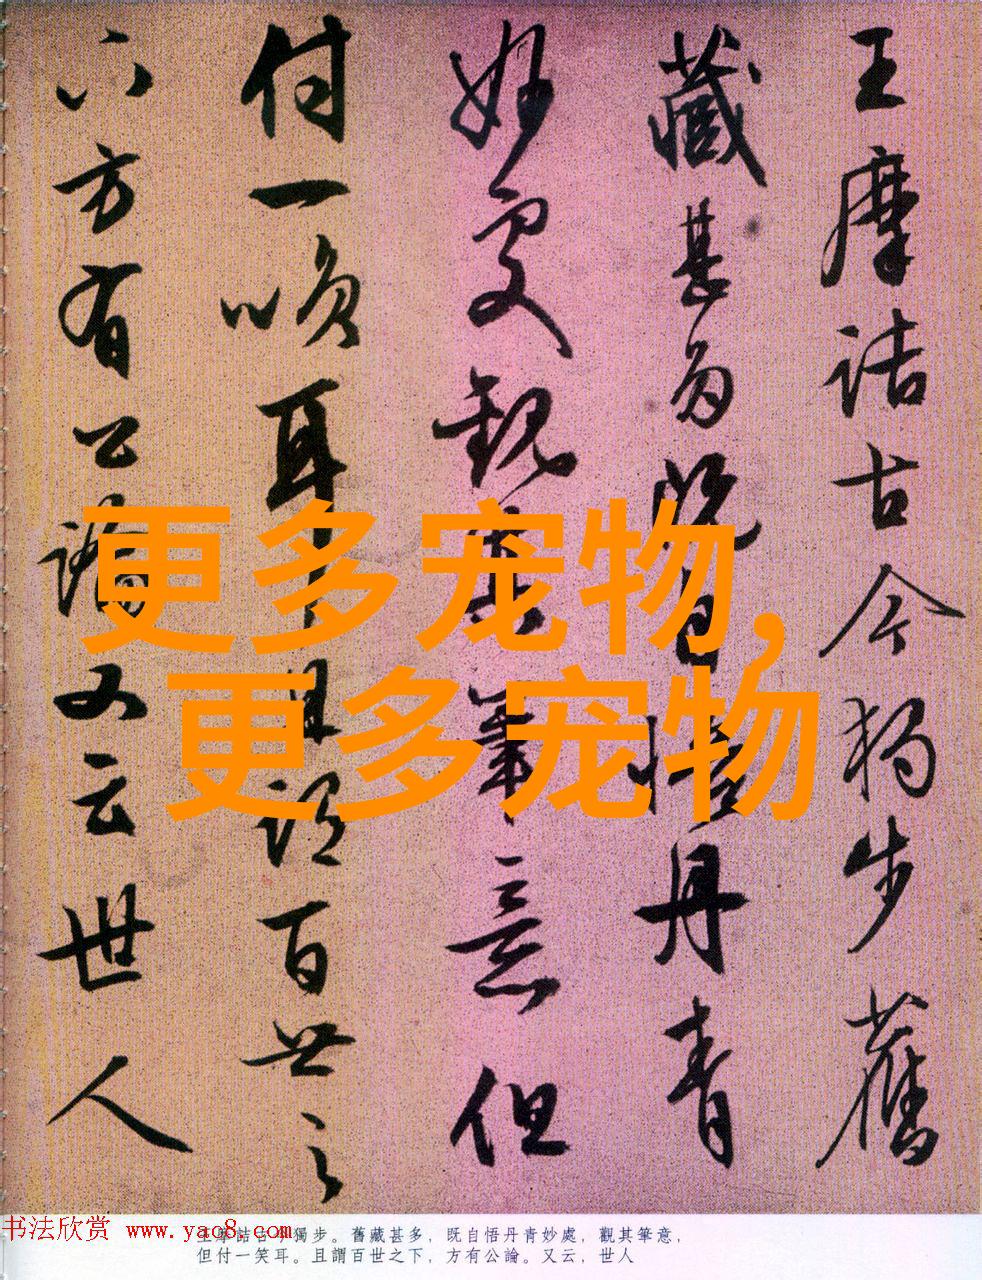 王摩詰古今獨步舊
藏甚多既自悟丹青
妙處觀其筆意但
付一笑耳且謂百世之
下方有公論又云世人
更多宠物，
更多宠物
书法欣赏 www.yac8.com
王摩詰古今獨步。舊藏甚多，既自悟丹青妙處，觀其筆意，
但付一笑耳。且謂百世之下，方有公論。又云，世人